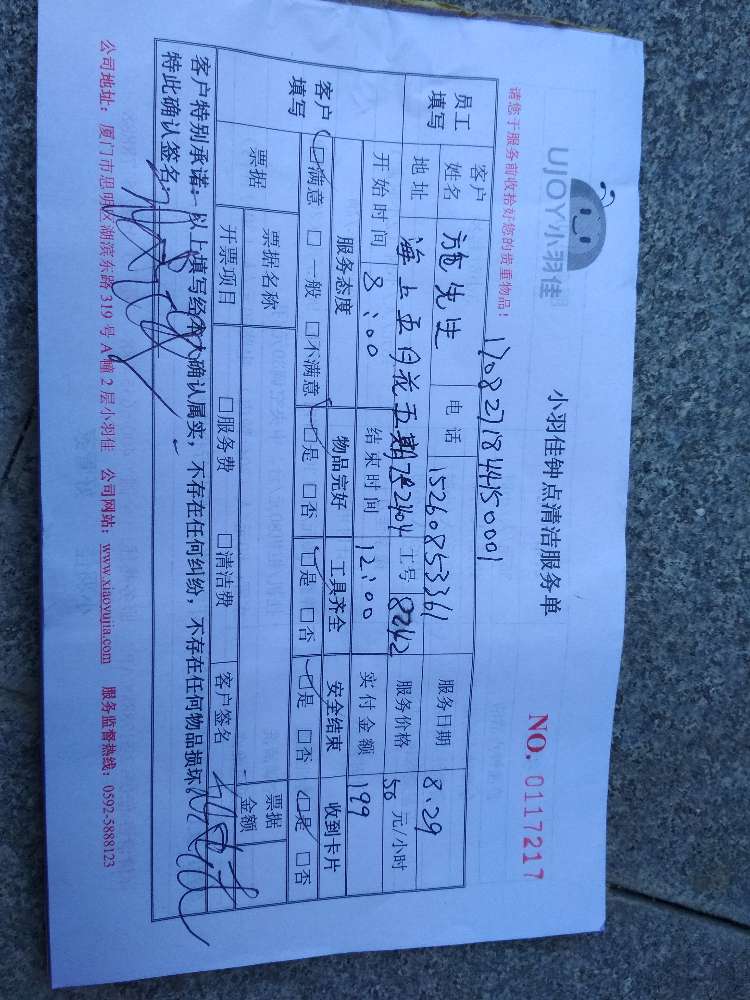 UJOY小羽佳
小羽佳钟点清洁服务单
NO. 0117217
请您于服务前收拾好您的贵重物品!
员工填写
客户姓名 施先生 电话 15260853361 服务日期 8.29
地址 海上五月花五期 2404 工号 8242 服务价格 50 元/小时
开始时间 8:00 结束时间 12:00 实付金额 199
客户填写
服务态度 物品完好 工具齐全 安全结束 收到卡片
☑满意 □一般 □不满意 ☑是 □否 ☑是 □否 ☑是 □否 ☑是 □否
票据 票据名称 票据金额
开票项目 □服务费 □清洁费 客户签名
客户特别承诺:以上填写经本人确认属实,不存在任何纠纷,不存在任何物品损坏
特此确认签名
公司地址:厦门市思明区湖滨东路 319 号 A 幢 2 层小羽佳 公司网站:www.xiaoyujia.com 服务监督热线:0592-5888123